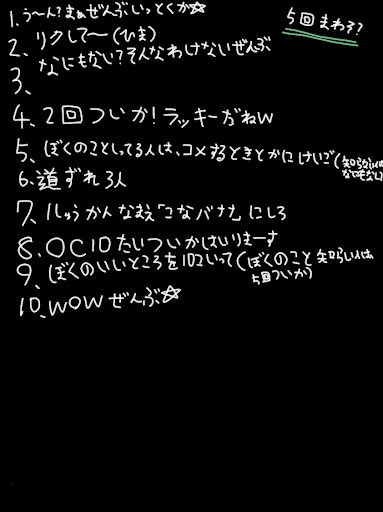 5回まわそ?
1.う~ん?まぁぜんぶいっとくか☆
2、リクして~(ひま)
3、なにもない?そんなわけないぜんぶ
4、2回ついか!ラッキーだねw
5、ぼくのことしってる人は、コメするときとかにけいご(知らない人は
なにもない
6、道ずれ3人
7、1しゅうかんなまえ「こなバナナ」にしろ
8、OC10たいついかはいりまーす
9、ぼくのいいところを10こいって(ぼくのこと知らない人は
5回ついか)
10、wowぜんぶ☆